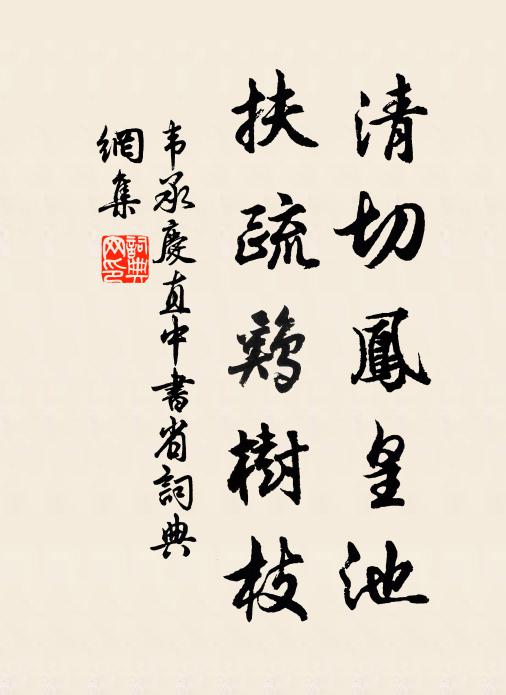 清切鳳皇池
扶疏鷄樹枝
韦承慶直中書省詞典
網集
詞典网印